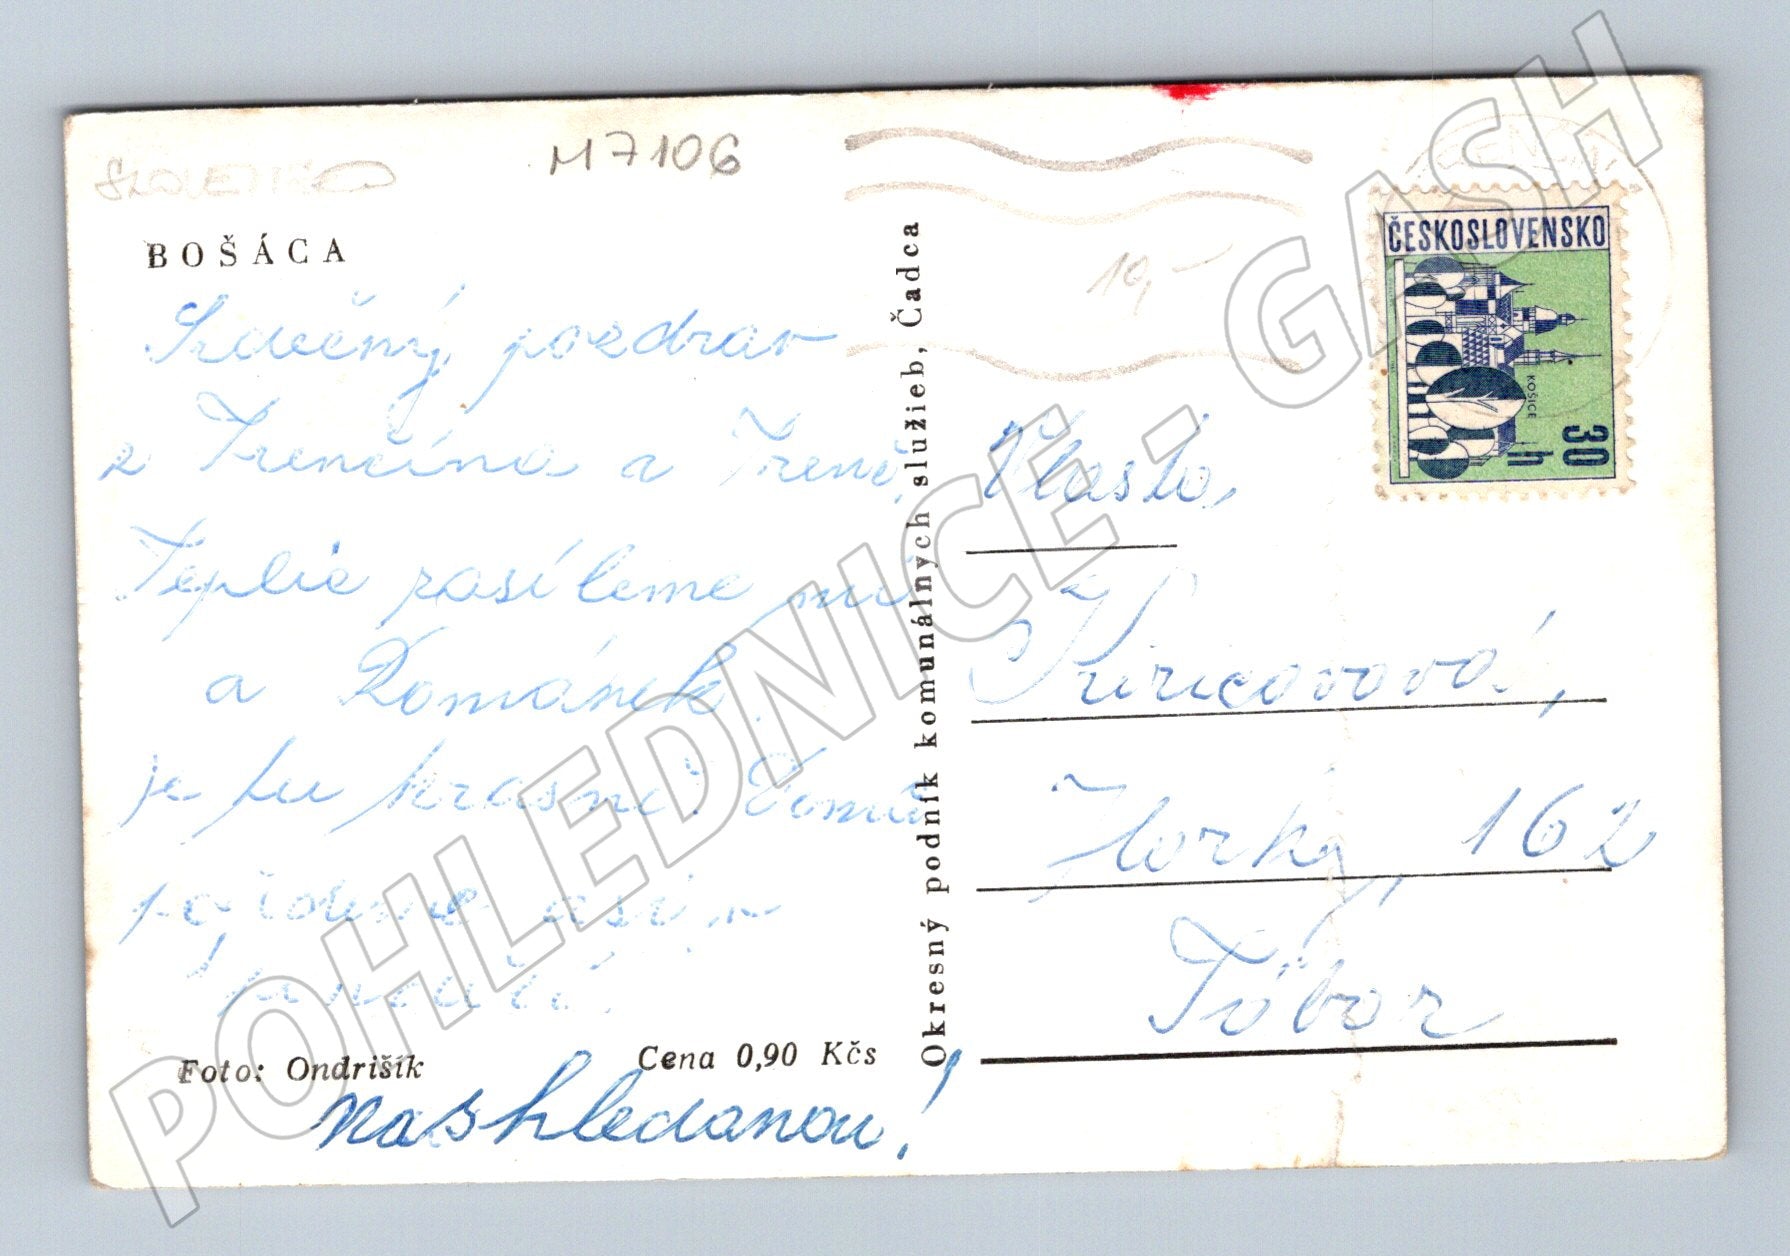 M 7106
BOŠÁCA
Srdečný pozdrav
z Trenčína a Trenč.
Teplic zasíleme mi
a Románek.
je tu krásně! Domů
asi v
Foto: Ondrišík
Cena 0,90 Kčs
Nashledanou!
Okresný podnik komunálnych služieb, Čadca
10,-
ČESKOSLOVENSKO
KOŠICE
30 h
Vlasta,
Horky, 162
Tábor
POHLEDNICE - GASH